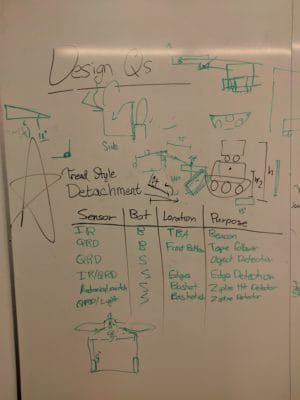 Design Qs
Side
Tread Style
Detachment
h
Sensor Bot Location Purpose
IR B TBA Beacon
QRD B Front Bottom Tape follower
QRD S Object Detection
IR/QRD S Edges Edge Detection
S Basket Zipline Hit Detector
QRD/Light S Basket Zipline Detector